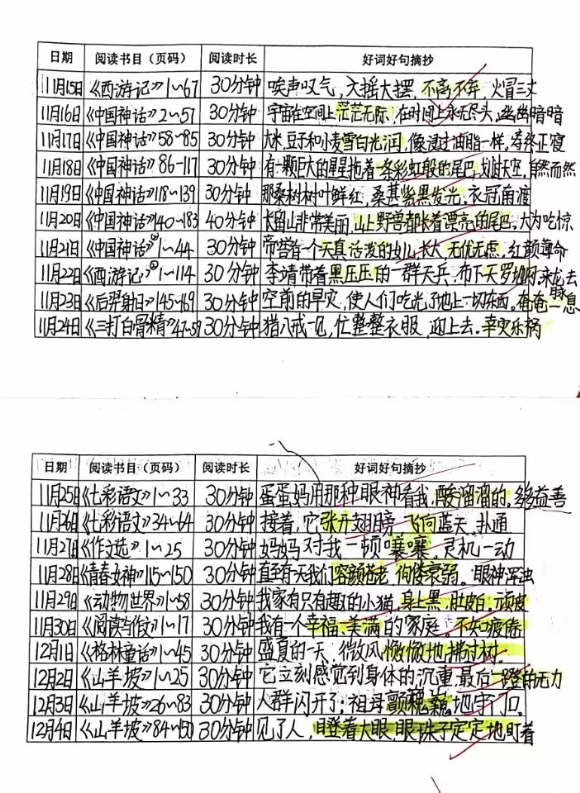 日期 阅读书目（页码） 阅读时长 好词好句摘抄
11月15日 《西游记》1~67 30分钟 唉声叹气，大摇大摆，不高不年，火冒三丈
11月16日 《中国神话》2~57 30分钟 宇宙在空间上茫茫无际，在时间上永无尽头，幽幽暗暗
11月17日 《中国神话》58~85 30分钟 大米，豆子和小麦雪白光润，像浸过油脂一样，寿终正寝
11月18日 《中国神话》86-117 30分钟 有一颗巨大的星星拖着一条彩虹般的尾巴，划破天空，自然而然
11月19日 《中国神话》118~139 30分钟 那桑树树叶鲜红，桑葚紫黑发光，衣冠南渡
11月20日 《中国神话》140~183 40分钟 山非常美丽，山上野兽都长着漂亮的尾巴，大为吃惊
11月21日 《中国神话》1~44 30分钟 帝喾有一个天真活泼的女儿，长大，无优无虑，红颜薄命
11月22日 《西游记》1~114 30分钟 李靖带着黑压压的一群天兵，布下天罗地网，来龙去脉
11月23日 《后羿射日》145~169 30分钟 空前的旱灾，使人们吃光了地上一切东西，奄奄一息
11月24日 《三打白骨精》47-59 30分钟 猪八戒一见，忙整整衣服，迎上去。幸灾乐祸
日期 阅读书目（页码） 阅读时长 好词好句摘抄
11月25日 《七彩语文》1~33 30分钟 蛋蛋妈用那种眼神看我，酸溜溜的，多多益善
11月26日 《七彩语文》34~64 30分钟 接着，它张开翅膀，飞向蓝天，扑通
11月27日 《作文选》1~25 30分钟 妈妈对我一顿嚷嚷，灵机一动
11月28日 《青春女神》115~150 30分钟 直至有天我们容颜苍老，佝偻衰弱。眼神浑浊
11月29日 《动物世界》1~58 30分钟 我家有只有趣的小猫，身上黑，肚皮白，顽皮
11月30日 《阅读与作文》1~17 30分钟 我有一个幸福、美满的家庭，不知疲倦
12月1日 《格林童话》1~45 30分钟 盛夏的一天，微风懒懒地拂过村
12月2日 《山羊坡》1~25 30分钟 它立刻感觉到身体的沉重，最后一蹬的无力
12月3日 《山羊坡》26~83 30分钟 人群闪开了；祖母颤巍巍地守门口
12月4日 《山羊坡》84~150 30分钟 见了人，瞪着大眼，眼珠子定定地盯着